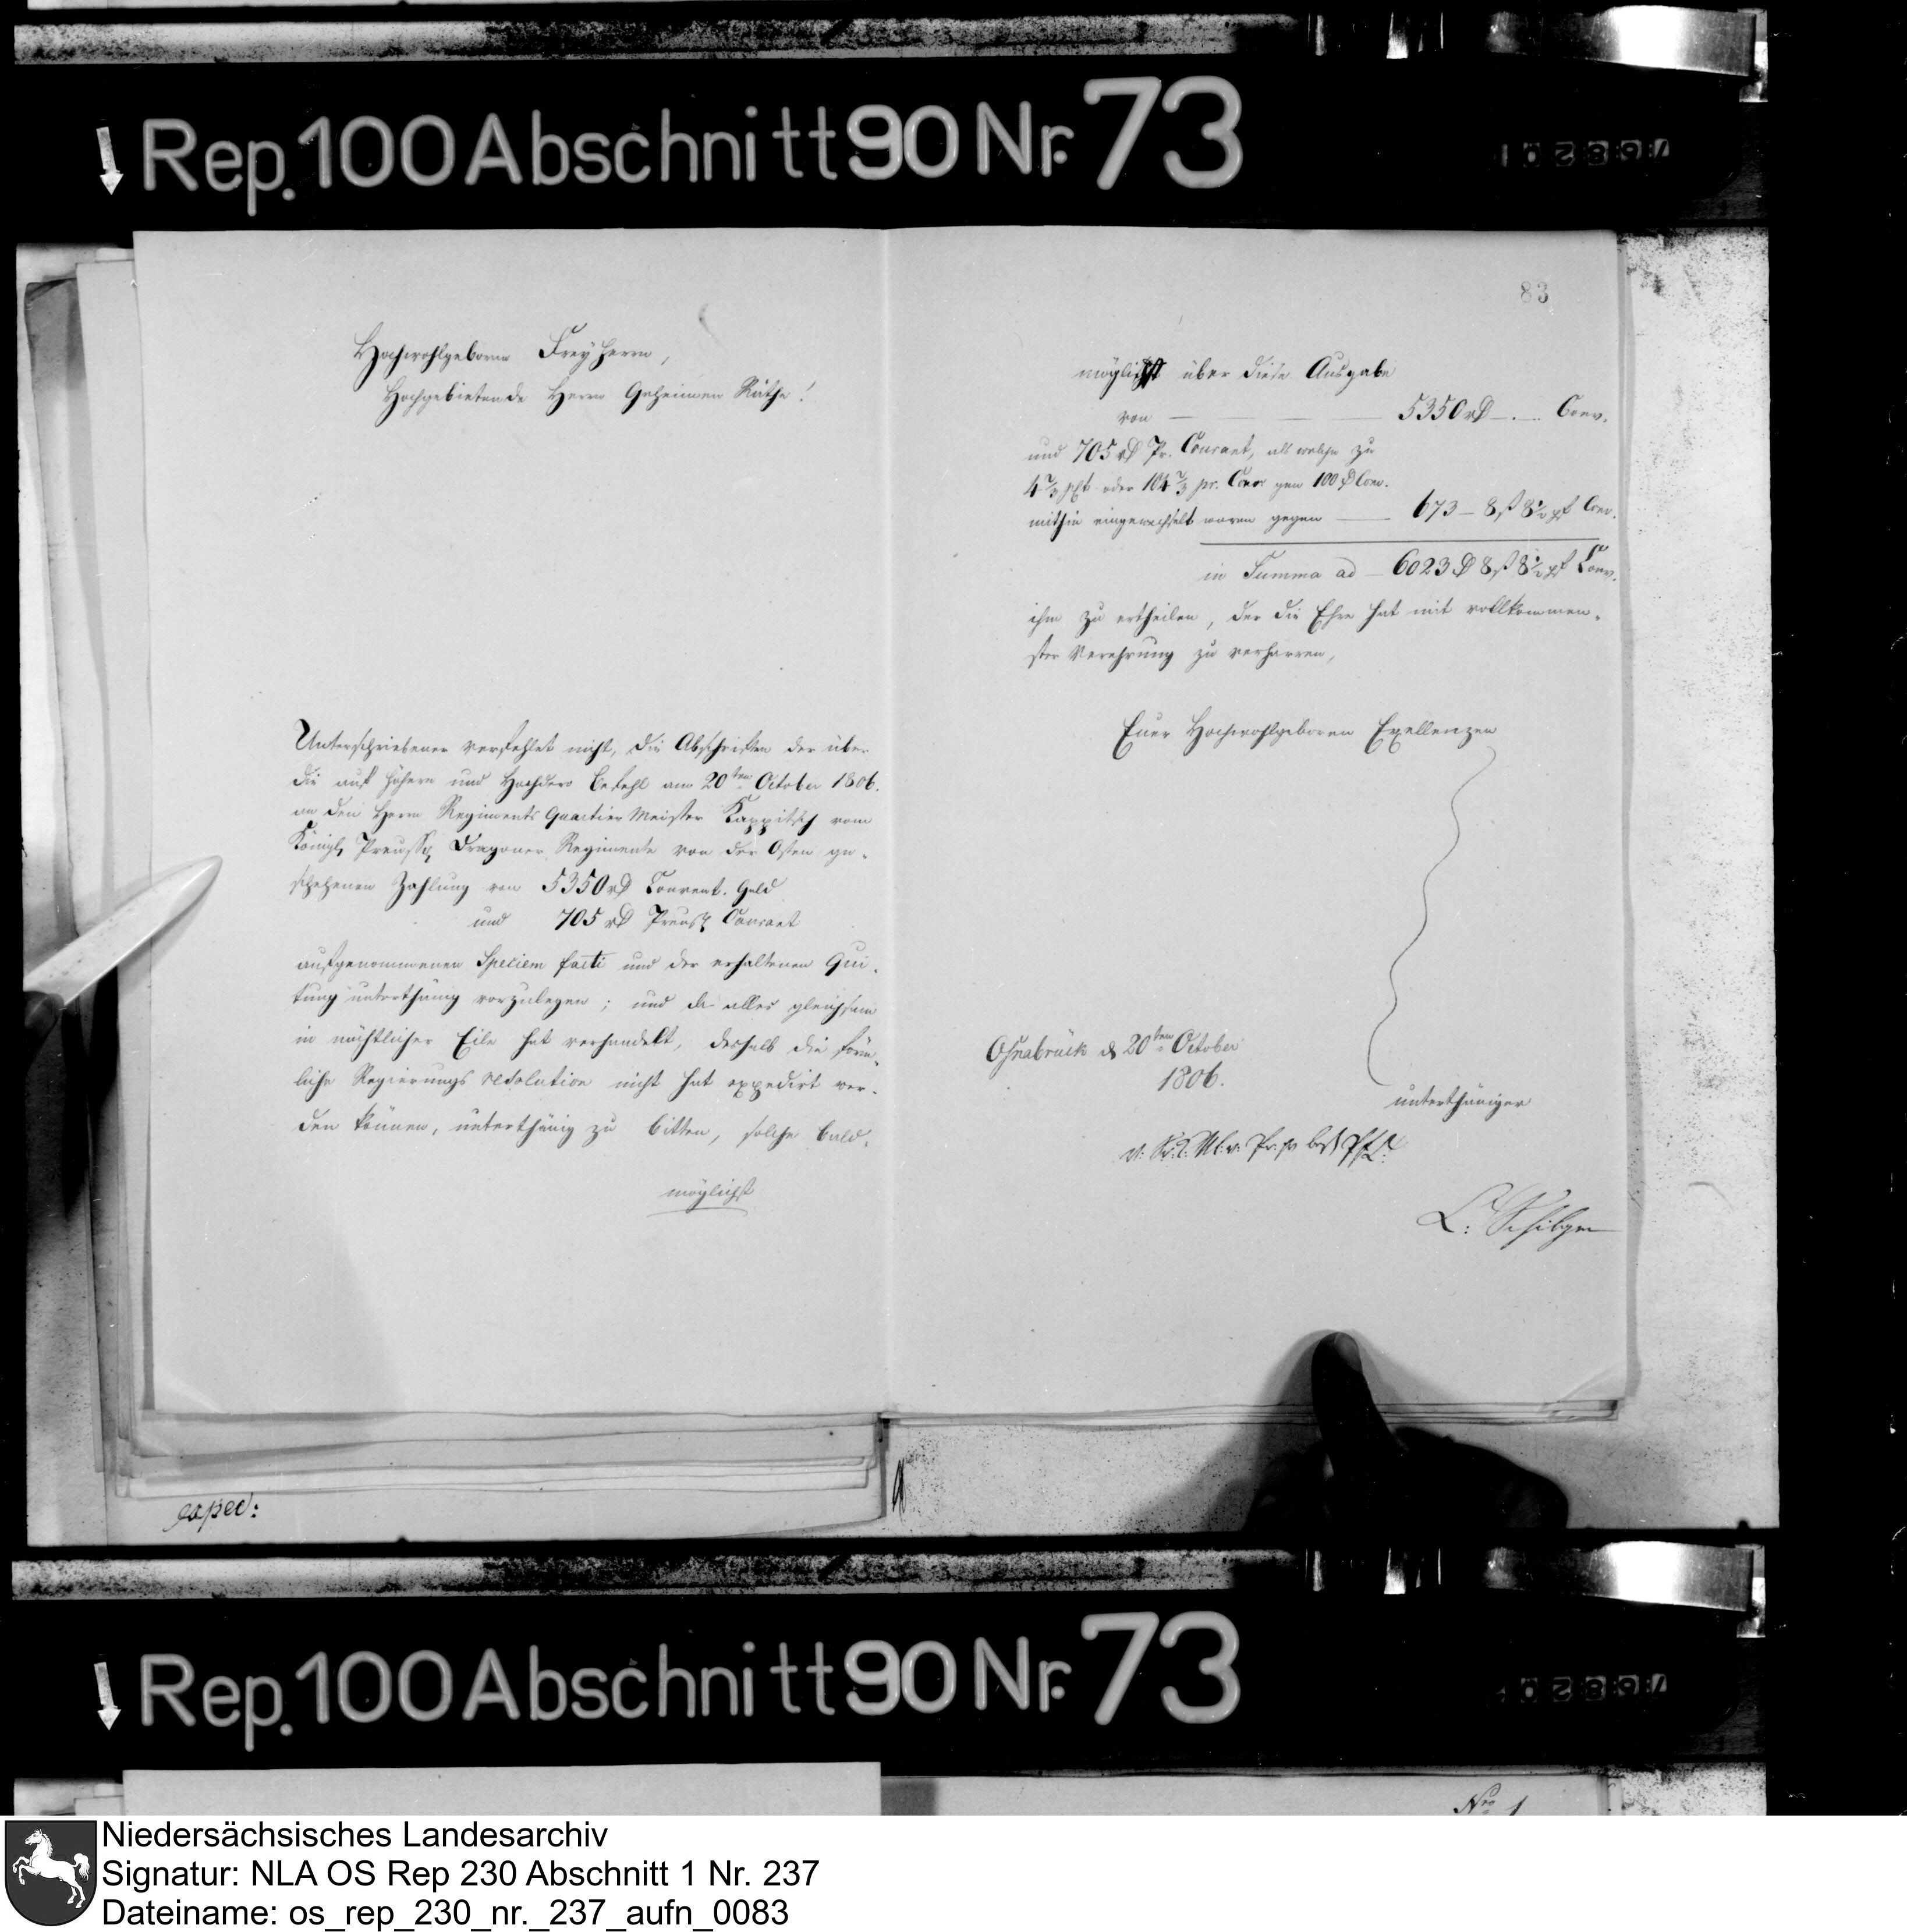 Rep. 100 Abschnitt 90 Nr. 73
102897
Hochwohlgeborne Freyherrn,
Hochgebietende Herrn Geheimen Räthe!
Unterschriebener verfehlet nicht, die Abschriften der über
die auf höhern und Hochdero Befehl am 20ten October 1806.
an den Herrn Regiments Quartier Meister Kappitsch vom
Königl Preussl Dragoner Regimente von der Osten ge-
schehenen Zahlung von 5350 rD Convent. Geld
und 705 rD Preusl Courant
aufgenommenen Speciem facti und der erhaltenen Qui-
tung unterthänig vorzulegen; und da alles gleichsam
in nächtlicher Eile hat verhandelt, deshalb die förm-
liche Regierungs resolution nicht hat expedirt wer-
den können, unterthänig zu bitten, solche bald-
möglichst
83
möglichst über diese Ausgabe
von 5350 rD Conv.
und 705 rD Pr. Courant, als welche zu
4 2/3 pCt oder 104 2/3 pr. Cour gen 100 D Conv.
mithin eingewechselt waren gegen 673 - 8 ß 8 1/2 pf Conv.
in Summa ad 6023 D 8 ß 8 1/2 pf Conv.
ihm zu ertheilen, der die Ehre hat mit vollkommen-
ster Verehrung zu verharren,
Euer Hochwohlgeboren Exellenzen
Osnabrück d 20ten October
1806.
unterthäniger
L: Schilgen
exped:
Rep. 100 Abschnitt 90 Nr. 73
Nro 1
Niedersächsisches Landesarchiv
Signatur: NLA OS Rep 230 Abschnitt 1 Nr. 237
Dateiname: os_rep_230_nr._237_aufn_0083